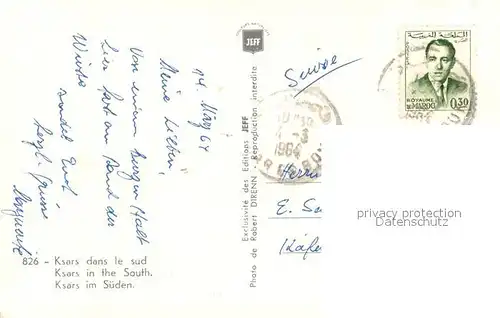 14. März 64
Meine Lieben,
Von einem kurzen Halt
hier hart am Rand der
Wüste sendet Euch
herzl. Grüsse
826 - Ksars dans le sud
Ksars in the South.
Ksars im Süden.
JEFF
Exclusivité des Editions JEFF
Photo de Robert DIRENN - Reproduction interdite
Suisse
1964
ROYAUME
DU MAROC
0,30
Herrn
E. Sa
Käfe
privacy protection
Datenschutz